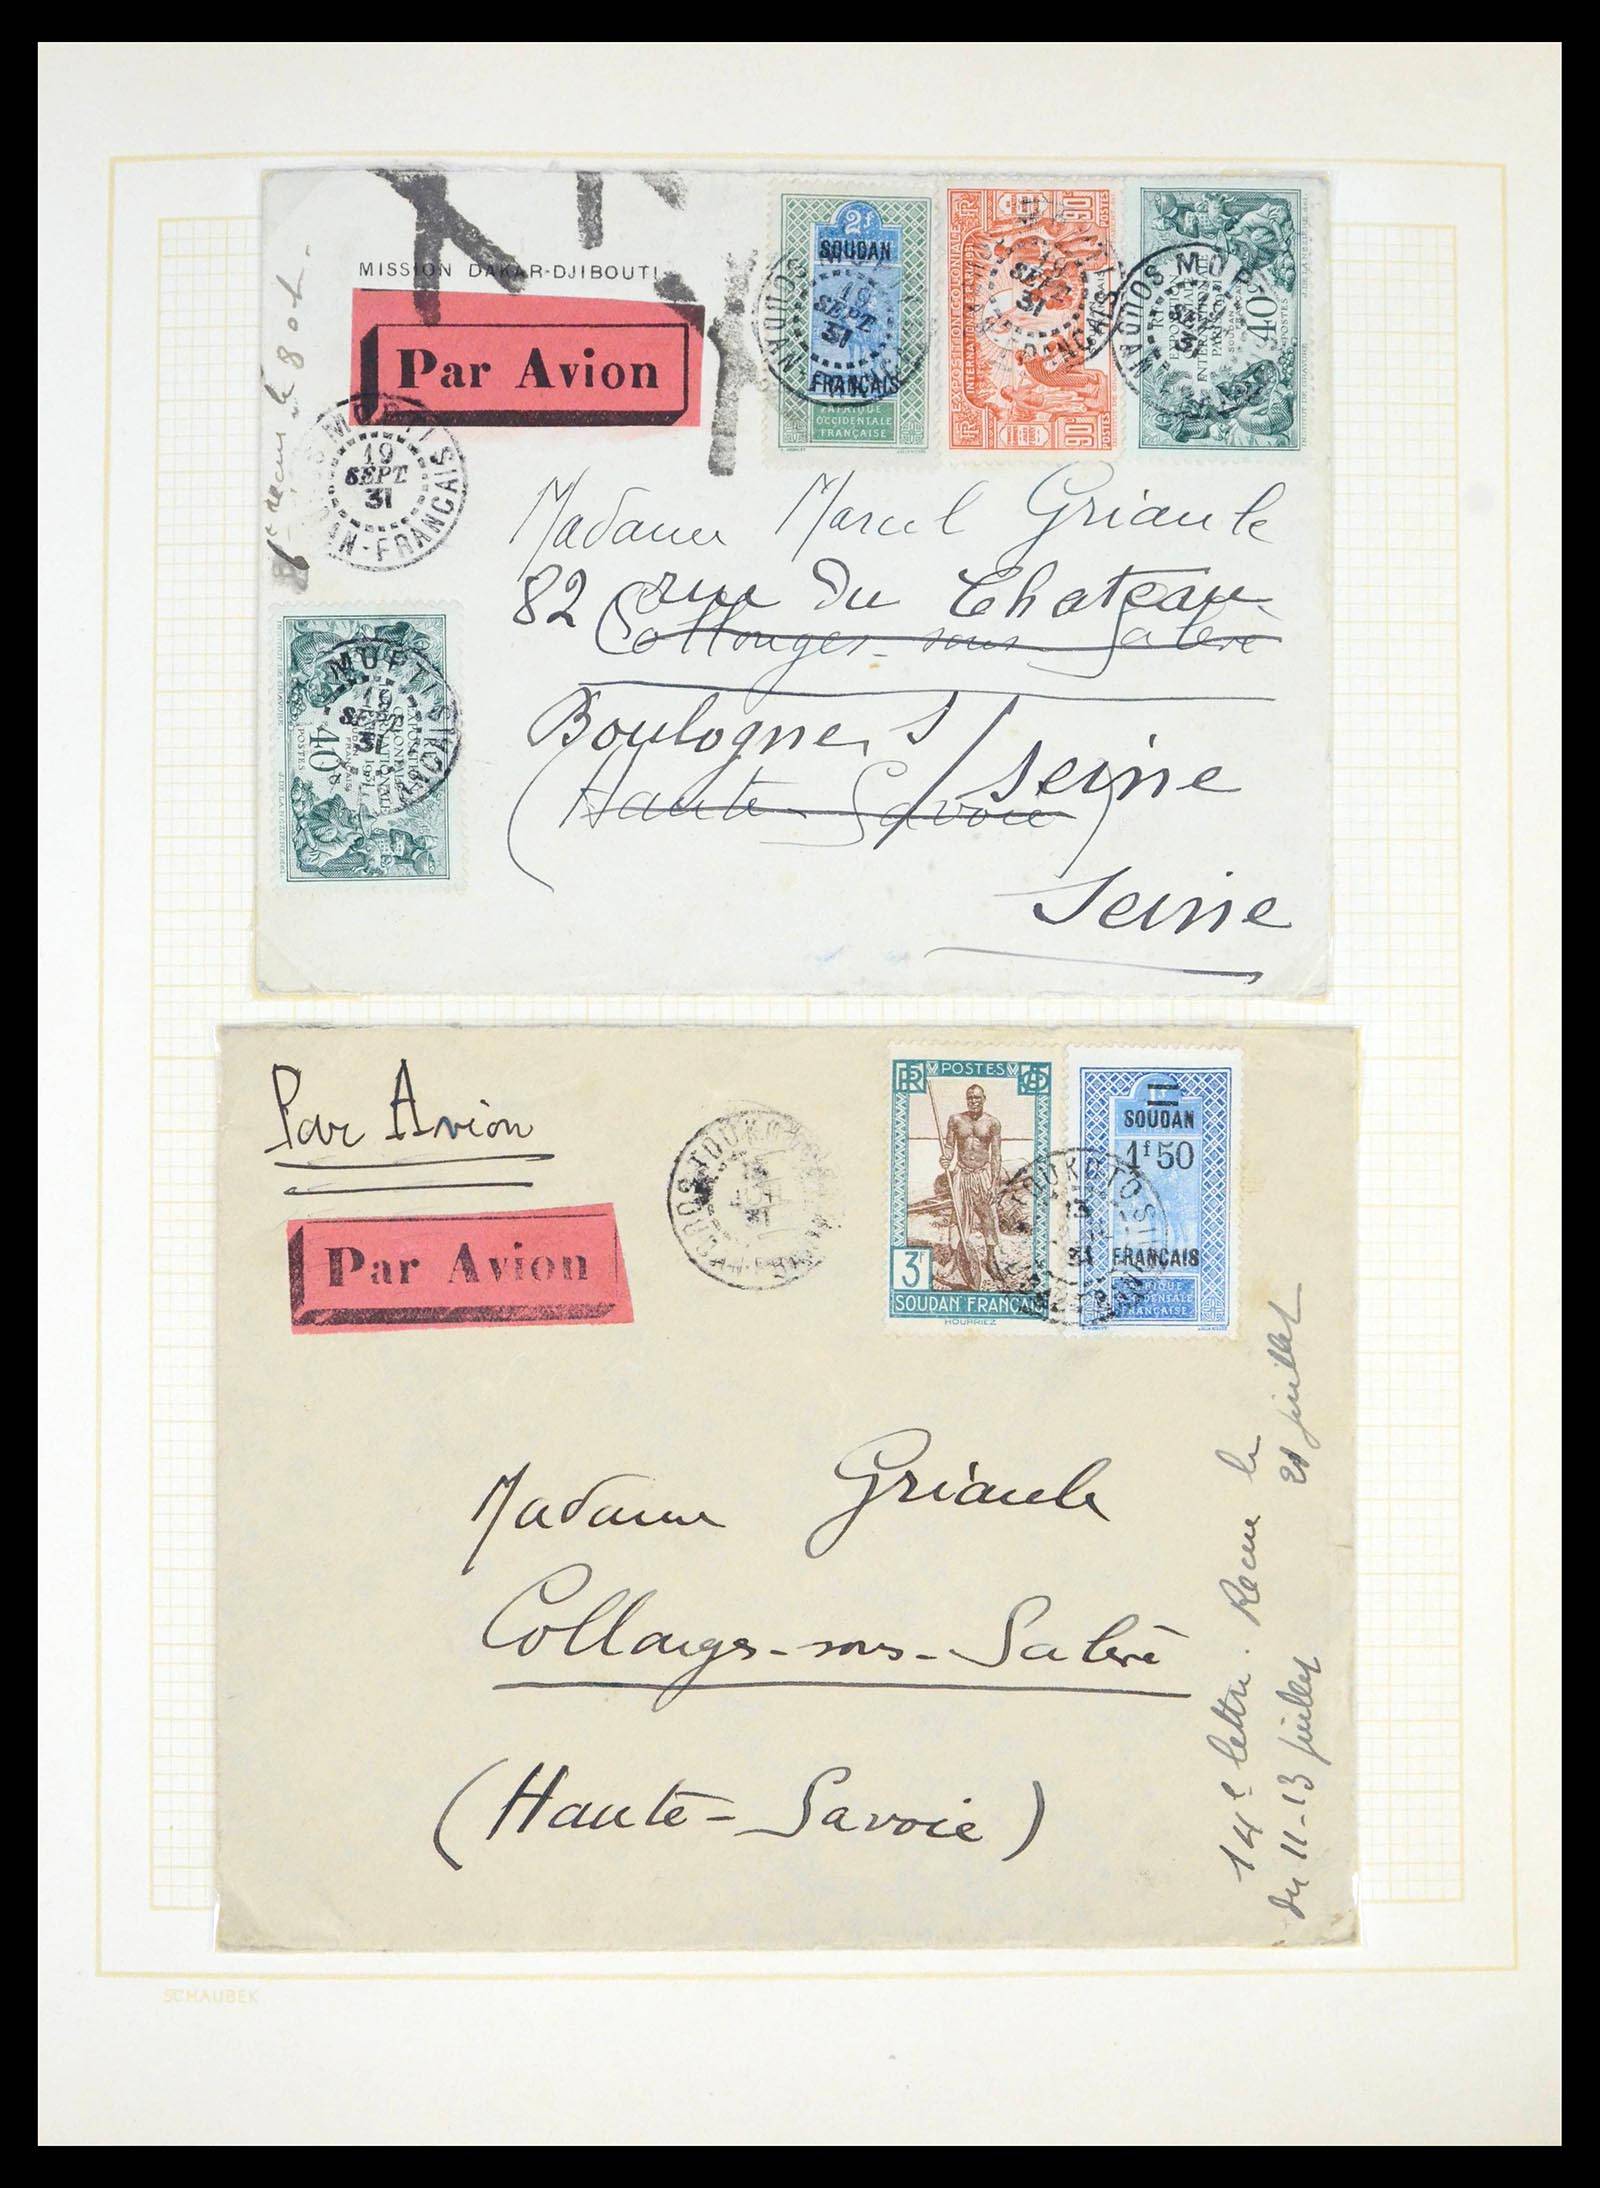 MISSION DAKAR-DJIBOUTI
Par Avion
recu le 8 oct.
MOPTI
19
SEPT
31
SOUDAN-FRANCAIS
2f
SOUDAN
19
SEPT
31
FRANÇAIS
AFRIQUE
OCCIDENTALE
FRANÇAISE
RF
EXPOSITION COLONIALE
INTERNATIONALE PARIS 1931
90c
POSTES
SEPT
31
90c
POSTES
MOPTI
RF
EXPOSITION
COLONIALE
INTERNATIONALE
PARIS 1931
SOUDAN
FRANÇAIS
40c
POSTES
Madame Marcel Griaule
82 rue du Chateau
Collonges-sous-Salève
Boulogne s/Seine
(Haute-Savoie)
Seine
MOPTI
19
SEPT
31
EXPOSITION
COLONIALE
INTERNATIONALE
PARIS 1931
SOUDAN
FRANÇAIS
40c
POSTES
Par Avion
Par Avion
TOUKOTO
31
RF
POSTES
3F
SOUDAN FRANÇAIS
HOURRIEZ
SOUDAN
1f50
TOUKOTO
13
31
FRANÇAIS
AFRIQUE
OCCIDENTALE
FRANÇAISE
Madame Griaule
Collonges-sous-Salève
(Haute-Savoie)
14e lettre. Recue le 21 juillet
du 11-13 juillet
SCHAUBEK